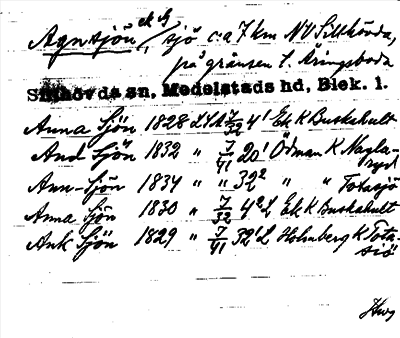 Agnsjön ek G, sjö c:a 7 km NV Sillhövda,
på gränsen t. Äringsboda
Sillhövda sn, Medelstads hd, Blek. l.
Anna Sjön 1828 LSA 7/32 4¹ Ek K Buskahult
And Sjön 1832 " 7/41 20¹ Ödman K Nagla-
ryd
Ann-Sjön 1834 " " 32² " " Totasjö
Anna Sjön 1830 " 7/32 4² L Ek K Buskahult
Ank Sjön 1829 " 7/41 32¹ L Holmberg K Tota-
sjö